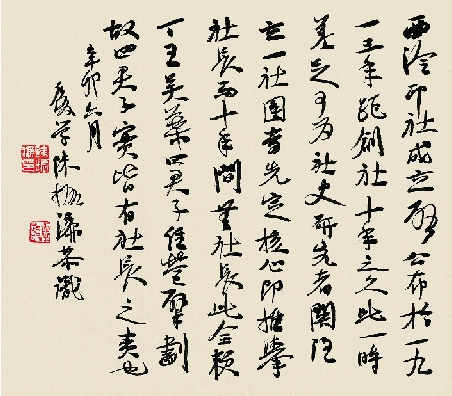 西泠印社成立啓公布於一九
一三年距創社十年之久此一時
差为社史研究者關注
立一社團當先定核心即推舉
社長而十年間無社長此全賴
丁王吳葉四君子經營擘劃
故四君子實皆有社長之責也
辛卯六月
後学陳振濂恭識